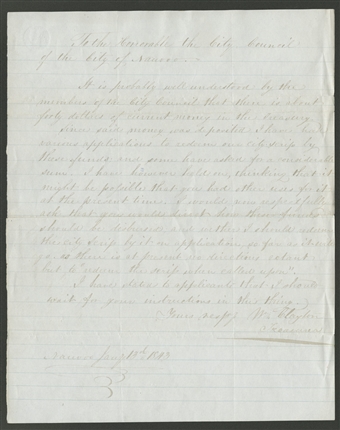 To the Honorable the City Council
of the City of Nauvoo—
It is probably well understood by the
members of the City Council that there is about
forty dollars of current money in the treasury
since said money was deposited I have had
various applications to redeem city scrip by
these funds and some have asked for a
sum. I have however held on, thinking that it
might be possible that you had other uses for it
at the present time. I would now respectfully
ask that you would direct how these funds
should be disbursed and whether I should redeem
the city scrip by it on application so far as it will
go as there is at present no directions extant
but to redeem the scrip when called upon.
I have stated to applicants that I should
wait for your instructions in this thing.
Yours respy Wm Clayton
Treasurer
Nauvoo 1843